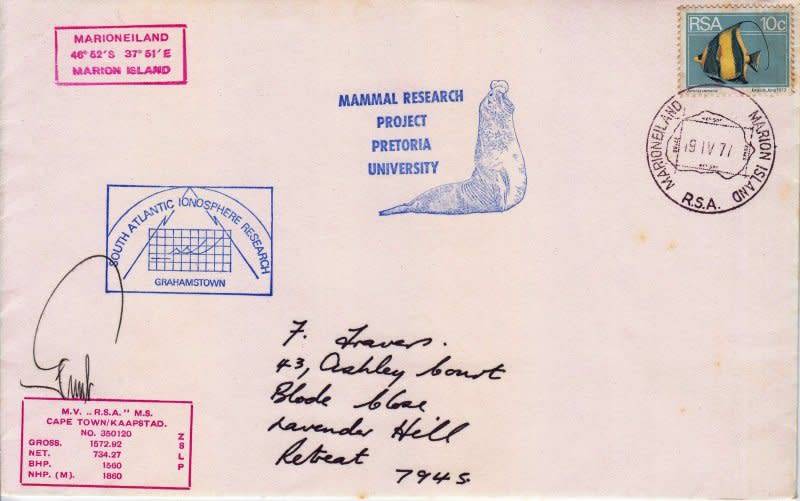 MARIONEILAND
46° 52'S 37° 51'E
MARION ISLAND
RSA 10c
MAMMAL RESEARCH
PROJECT
PRETORIA
UNIVERSITY
MARIONEILAND MARION ISLAND
R.S.A.
SOUTH ATLANTIC IONOSPHERE RESEARCH
GRAHAMSTOWN
F. Travers.
43, Ashley Court
Blode Close
Lavender Hill
Retreat
7945
M.V. „R.S.A." M.S.
CAPE TOWN/KAAPSTAD.
NO. 350120
GROSS. 1572.92
NET. 734.27
BHP. 1560
NHP. (M). 1860
ZSLP